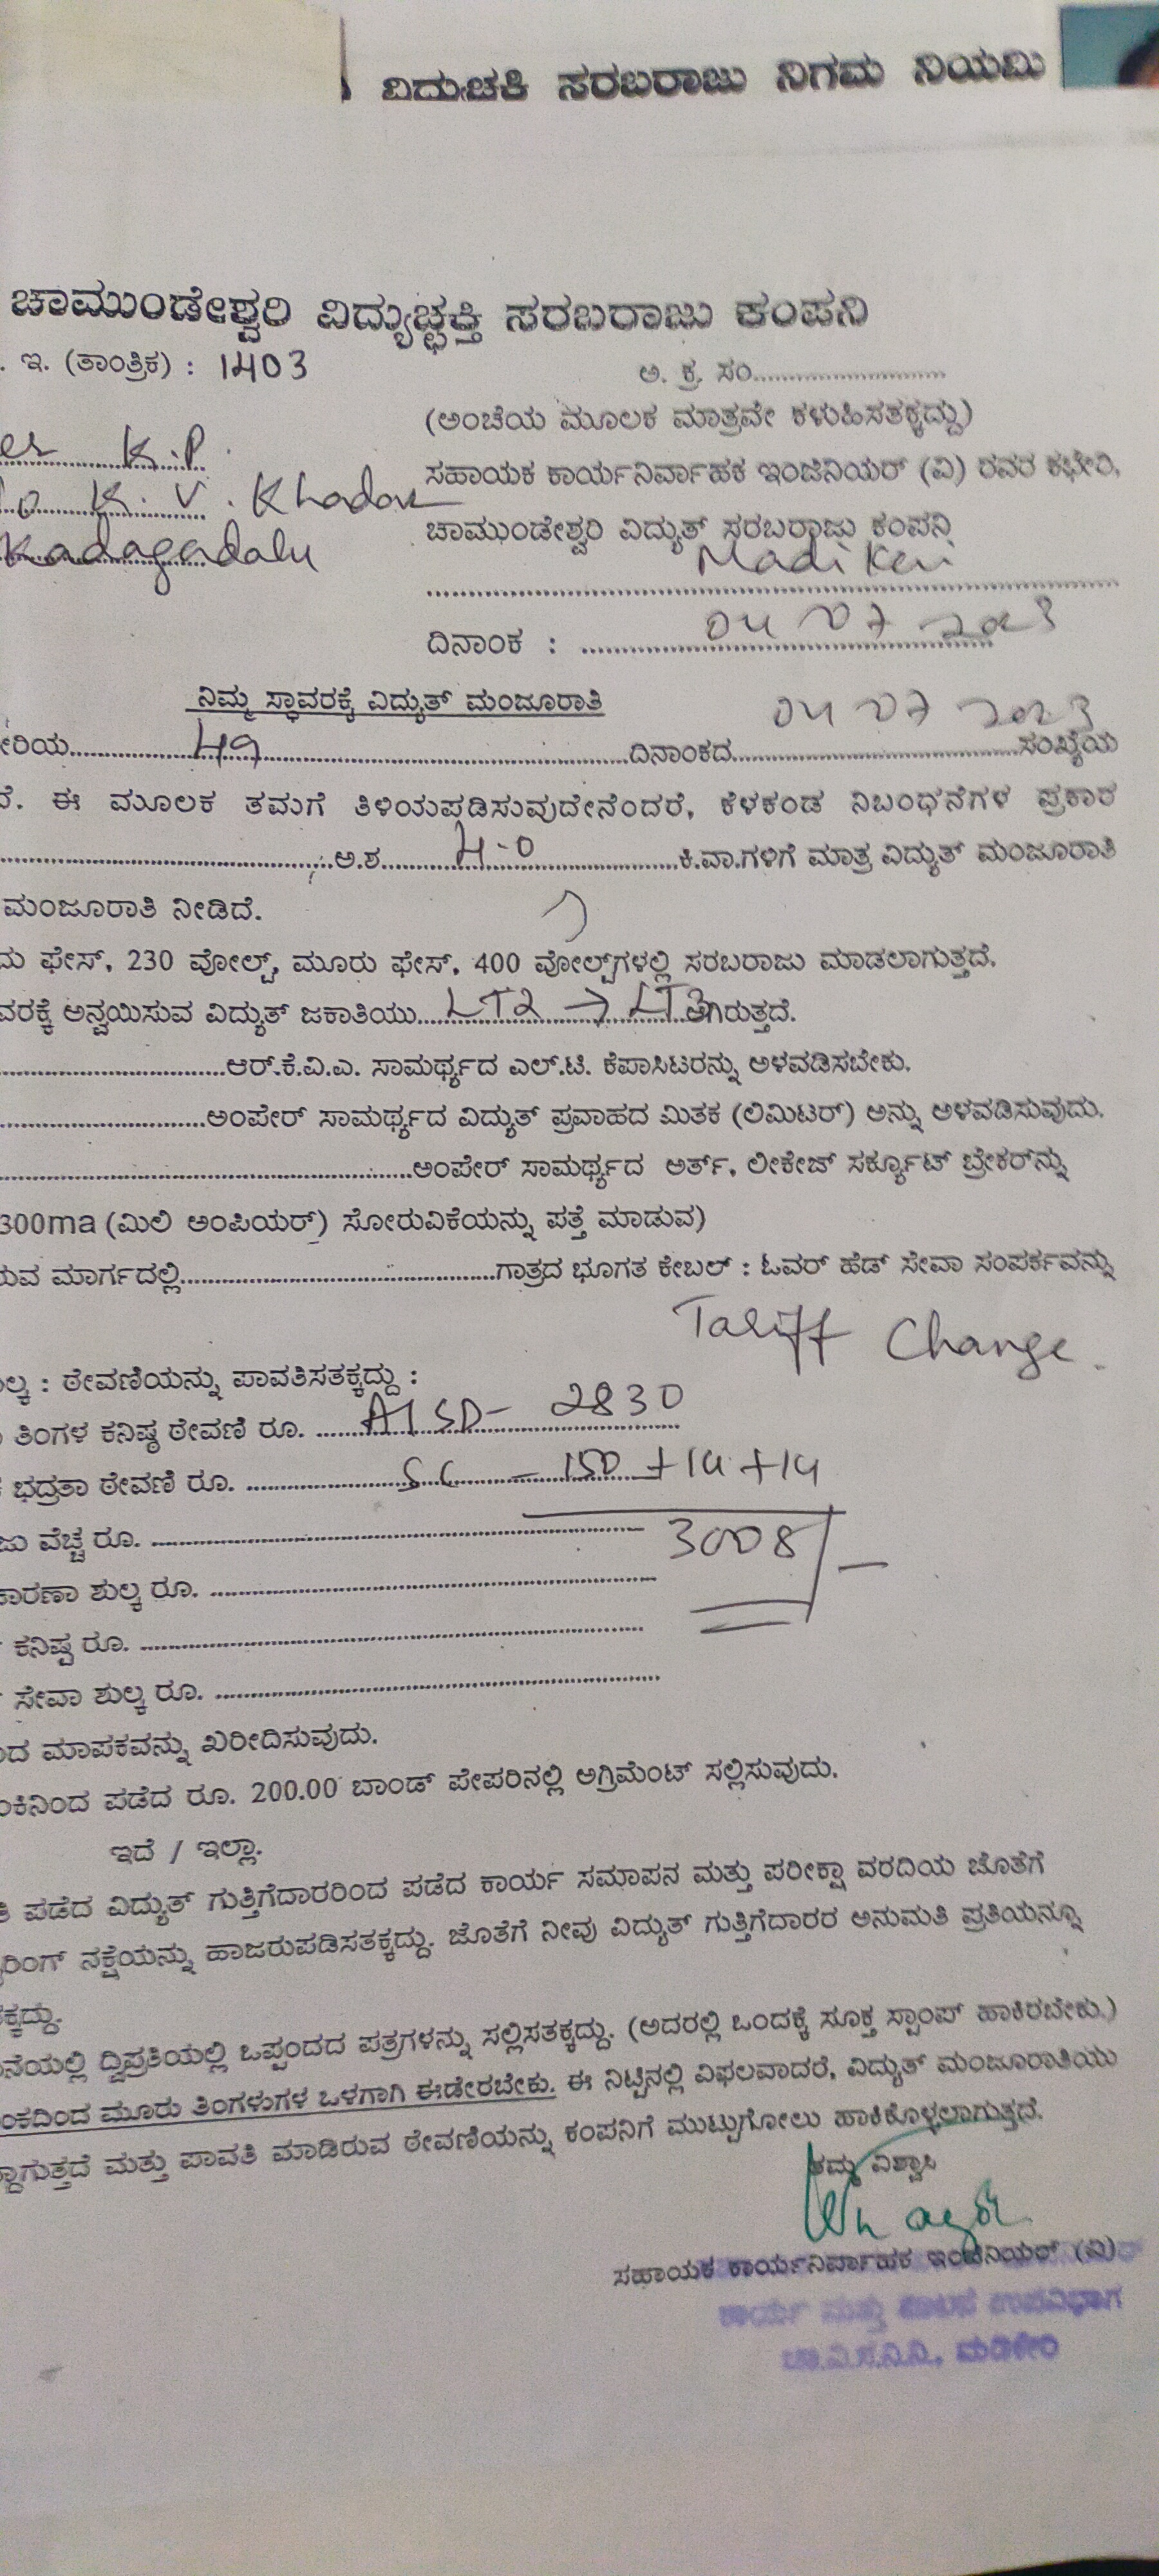 ವಿದ್ಯುಚಕಿ ಸರಬರಾಜು ನಿಗಮ ನಿಯಮಿ
ಚಾಮುಂಡೇಶ್ವರಿ ವಿದ್ಯುಚ್ಛಕ್ತಿ ಸರಬರಾಜು ಕಂಪನಿ
. ಇ. (ತಾಂತ್ರಿಕ) : 1403
ಅ. ಕ್ರ. ಸಂ............................
(ಅಂಚೆಯ ಮೂಲಕ ಮಾತ್ರವೇ ಕಳುಹಿಸತಕ್ಕದ್ದು)
K.P.
ಸಹಾಯಕ ಕಾರ್ಯನಿರ್ವಾಹಕ ಇಂಜಿನಿಯರ್ (ವಿ) ರವರ ಕಛೇರಿ,
K. V. Khadar
ಚಾಮುಂಡೇಶ್ವರಿ ವಿದ್ಯುತ್ ಸರಬರಾಜು ಕಂಪನಿ
Kadagadalu
Madikeri
ದಿನಾಂಕ : 04 07 2023
ನಿಮ್ಮ ಸ್ಥಾವರಕ್ಕೆ ವಿದ್ಯುತ್ ಮಂಜೂರಾತಿ
ೇರಿಯ............49............ದಿನಾಂಕದ......04 07 2023......ಸಂಖ್ಯೆಯ
ದೆ. ಈ ಮೂಲಕ ತಮಗೆ ತಿಳಿಯಪಡಿಸುವುದೇನೆಂದರೆ, ಕೆಳಕಂಡ ನಿಬಂಧನೆಗಳ ಪ್ರಕಾರ
............ಅ.ಶ......4.0............ಕಿ.ವಾ.ಗಳಿಗೆ ಮಾತ್ರ ವಿದ್ಯುತ್ ಮಂಜೂರಾತಿ
ಮಂಜೂರಾತಿ ನೀಡಿದೆ.
ದು ಫೇಸ್, 230 ವೋಲ್ಟ್, ಮೂರು ಫೇಸ್, 400 ವೋಲ್ಟ್‌ಗಳಲ್ಲಿ ಸರಬರಾಜು ಮಾಡಲಾಗುತ್ತದೆ.
ವರಕ್ಕೆ ಅನ್ವಯಿಸುವ ವಿದ್ಯುತ್ ಜಕಾತಿಯು....LT2 → LT3 ಆಗಿರುತ್ತದೆ.
............ಆರ್.ಕೆ.ವಿ.ಎ. ಸಾಮರ್ಥ್ಯದ ಎಲ್.ಟಿ. ಕೆಪಾಸಿಟರನ್ನು ಅಳವಡಿಸಬೇಕು.
............ಅಂಪೇರ್ ಸಾಮರ್ಥ್ಯದ ವಿದ್ಯುತ್ ಪ್ರವಾಹದ ಮಿತಕ (ಲಿಮಿಟರ್) ಅನ್ನು ಅಳವಡಿಸುವುದು.
............ಅಂಪೇರ್ ಸಾಮರ್ಥ್ಯದ ಅರ್ತ್, ಲೀಕೇಜ್ ಸರ್ಕ್ಯೂಟ್ ಬ್ರೇಕರ್‌ನ್ನು
300ma (ಮಿಲಿ ಅಂಪಿಯರ್) ಸೋರುವಿಕೆಯನ್ನು ಪತ್ತೆ ಮಾಡುವ)
ುವ ಮಾರ್ಗದಲ್ಲಿ............ಗಾತ್ರದ ಭೂಗತ ಕೇಬಲ್ : ಓವರ್ ಹೆಡ್ ಸೇವಾ ಸಂಪರ್ಕವನ್ನು
Tariff Change.
ಲ್ಕ : ಠೇವಣಿಯನ್ನು ಪಾವತಿಸತಕ್ಕದ್ದು :
ತಿಂಗಳ ಕನಿಷ್ಠ ಠೇವಣಿ ರೂ. ......... 2830
ಭದ್ರತಾ ಠೇವಣಿ ರೂ. ......... SC - 150 + 14 + 14
ಜು ವೆಚ್ಚ ರೂ. ............ 3008/-
ಕಾರಣಾ ಶುಲ್ಕ ರೂ. ............
ಕನಿಷ್ಠ ರೂ. ............
ಸೇವಾ ಶುಲ್ಕ ರೂ. ............
ಂದ ಮಾಪಕವನ್ನು ಖರೀದಿಸುವುದು.
ಂಕಿನಿಂದ ಪಡೆದ ರೂ. 200.00 ಬಾಂಡ್ ಪೇಪರಿನಲ್ಲಿ ಅಗ್ರಿಮೆಂಟ್ ಸಲ್ಲಿಸುವುದು.
ಇದೆ / ಇಲ್ಲಾ.
ತಿ ಪಡೆದ ವಿದ್ಯುತ್ ಗುತ್ತಿಗೆದಾರರಿಂದ ಪಡೆದ ಕಾರ್ಯ ಸಮಾಪನ ಮತ್ತು ಪರೀಕ್ಷಾ ವರದಿಯ ಜೊತೆಗೆ
ರಿಂಗ್ ನಕ್ಷೆಯನ್ನು ಹಾಜರುಪಡಿಸತಕ್ಕದ್ದು. ಜೊತೆಗೆ ನೀವು ವಿದ್ಯುತ್ ಗುತ್ತಿಗೆದಾರರ ಅನುಮತಿ ಪ್ರತಿಯನ್ನೂ
ಕ್ಕದ್ದು.
ನೆಯಲ್ಲಿ ದ್ವಿಪ್ರತಿಯಲ್ಲಿ ಒಪ್ಪಂದದ ಪತ್ರಗಳನ್ನು ಸಲ್ಲಿಸತಕ್ಕದ್ದು. (ಅದರಲ್ಲಿ ಒಂದಕ್ಕೆ ಸೂಕ್ತ ಸ್ಟಾಂಪ್ ಹಾಕಿರಬೇಕು.)
ಂಕದಿಂದ ಮೂರು ತಿಂಗಳುಗಳ ಒಳಗಾಗಿ ಈಡೇರಬೇಕು. ಈ ನಿಟ್ಟಿನಲ್ಲಿ ವಿಫಲವಾದರೆ, ವಿದ್ಯುತ್ ಮಂಜೂರಾತಿಯು
ದ್ದಾಗುತ್ತದೆ ಮತ್ತು ಪಾವತಿ ಮಾಡಿರುವ ಠೇವಣಿಯನ್ನು ಕಂಪನಿಗೆ ಮುಟ್ಟುಗೋಲು ಹಾಕಿಕೊಳ್ಳಲಾಗುತ್ತದೆ.
ತಮ್ಮ ವಿಶ್ವಾಸಿ
ಸಹಾಯಕ ಕಾರ್ಯನಿರ್ವಾಹಕ ಇಂಜಿನಿಯರ್ (ವಿ)
ಕಾರ್ಯ ಮತ್ತು ಪಾಲನೆ ಉಪವಿಭಾಗ
ಚಾ.ವಿ.ಸ.ನಿ.ನಿ., ಮಡಿಕೇರಿ